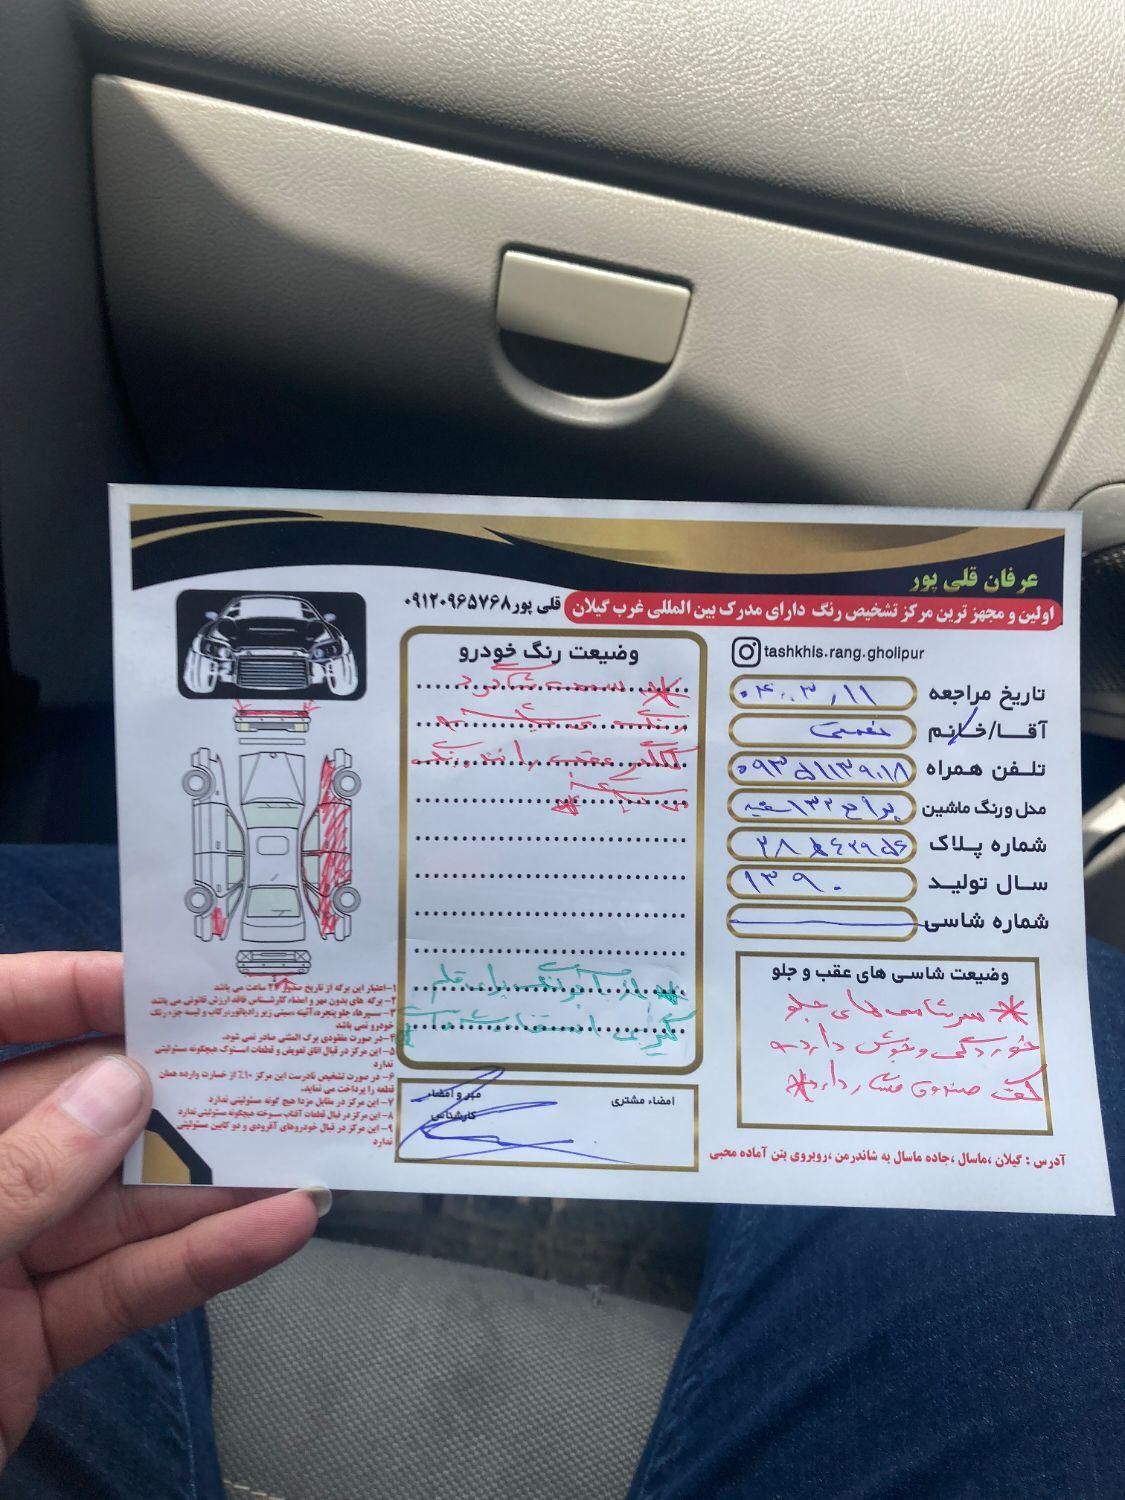 عرفان قلی پور
اولین و مجهز ترین مرکز تشخیص رنگ دارای مدرک بین المللی غرب گیلان
قلی پور ۰۹۱۲۰۹۶۵۷۶۸
tashkhis.rang.gholipur
تاریخ مراجعه ۰۴.۳.۱۱
آقا/خانم نعمتی
تلفن همراه
مدل و رنگ ماشین پراید ۱۳۲ سفید
شماره پلاک
سال تولید ۱۳۹۰
شماره شاسی
وضعیت شاسی های عقب و جلو
* سرشاسی های جلو
خوردگی و جوش دارد
کف صندوق فشار دارد *
وضیعت رنگ خودرو
* سمت شاگرد
رنگ
گلگیر عقب راننده رنگ
* از آبرنگ برای قلم
گیری استفاده شده است
امضاء مشتری
مهر و امضاء
کارشناس
۱-اعتبار این برگه از تاریخ صدور ۲۴ ساعت می باشد
۲- برگه های بدون مهر و امضاء کارشناس فاقد ارزش قانونی می باشد
۳- سپرها، جلو پنجره، آئینه ،سینی زیر رادیاتور،رکاب و لیسه جزء رنگ
خودرو نمی باشد
۴-در صورت مفقودی برگ المثنی صادر نمی شود.
۵- این مرکز در قبال اتاق تعویض و قطعات استوک هیچگونه مسئولیتی
ندارد
۶- در صورت تشخیص نادرست این مرکز ۱۰٪ از خسارت وارده همان
قطعه را پرداخت می نماید.
۷- این مرکز در مقابل مزدا هیچ گونه مسئولیتی ندارد
۸- این مرکز در قبال قطعات آفتاب سوخته هیچگونه مسئولیتی ندارد
۹- این مرکز در قبال خودروهای آفرودی و دو کابین مسئولیتی
ندارد
آدرس : گیلان ،ماسال ،جاده ماسال به شاندرمن ،روبروی بتن آماده محبی